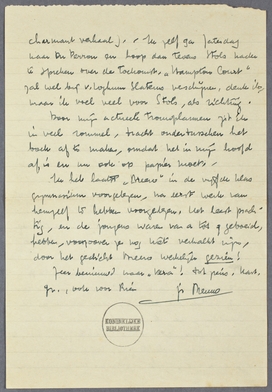 charmant verhaal j. - Ik zelf ga Zaterdag
naar Du Perron en hoop dan tevens Stols nader
te spreken over de toekomst. „Hampton Court"
zal wel bij v. Loghum Slaterus verschijnen, denk ik,
maar ik voel veel voor Stols, als richting.
Door mijn actueele zit ik
in veel rommel, tracht ondertusschen het
boek af te maken, omdat het in mijn hoofd
af is en nu ook op papier moet.
Ik heb laatst „Dreams" in de vijfde klas
gymnasium voorgelezen, na eerst werk van
hemzelf te hebben voorgelezen. Het leest prach-
tig, en de jongens waren van a tot z geboeid,
hebben, voorzoover ze nog niet verkalkt zijn,
door het gedicht Dreams werkelijk gezien!
Zeer benieuwd naar „Vera"! tot ziens. Hart.
gr., ook voor Rien
je Menno
KONINKLIJKE
BIBLIOTHEEK